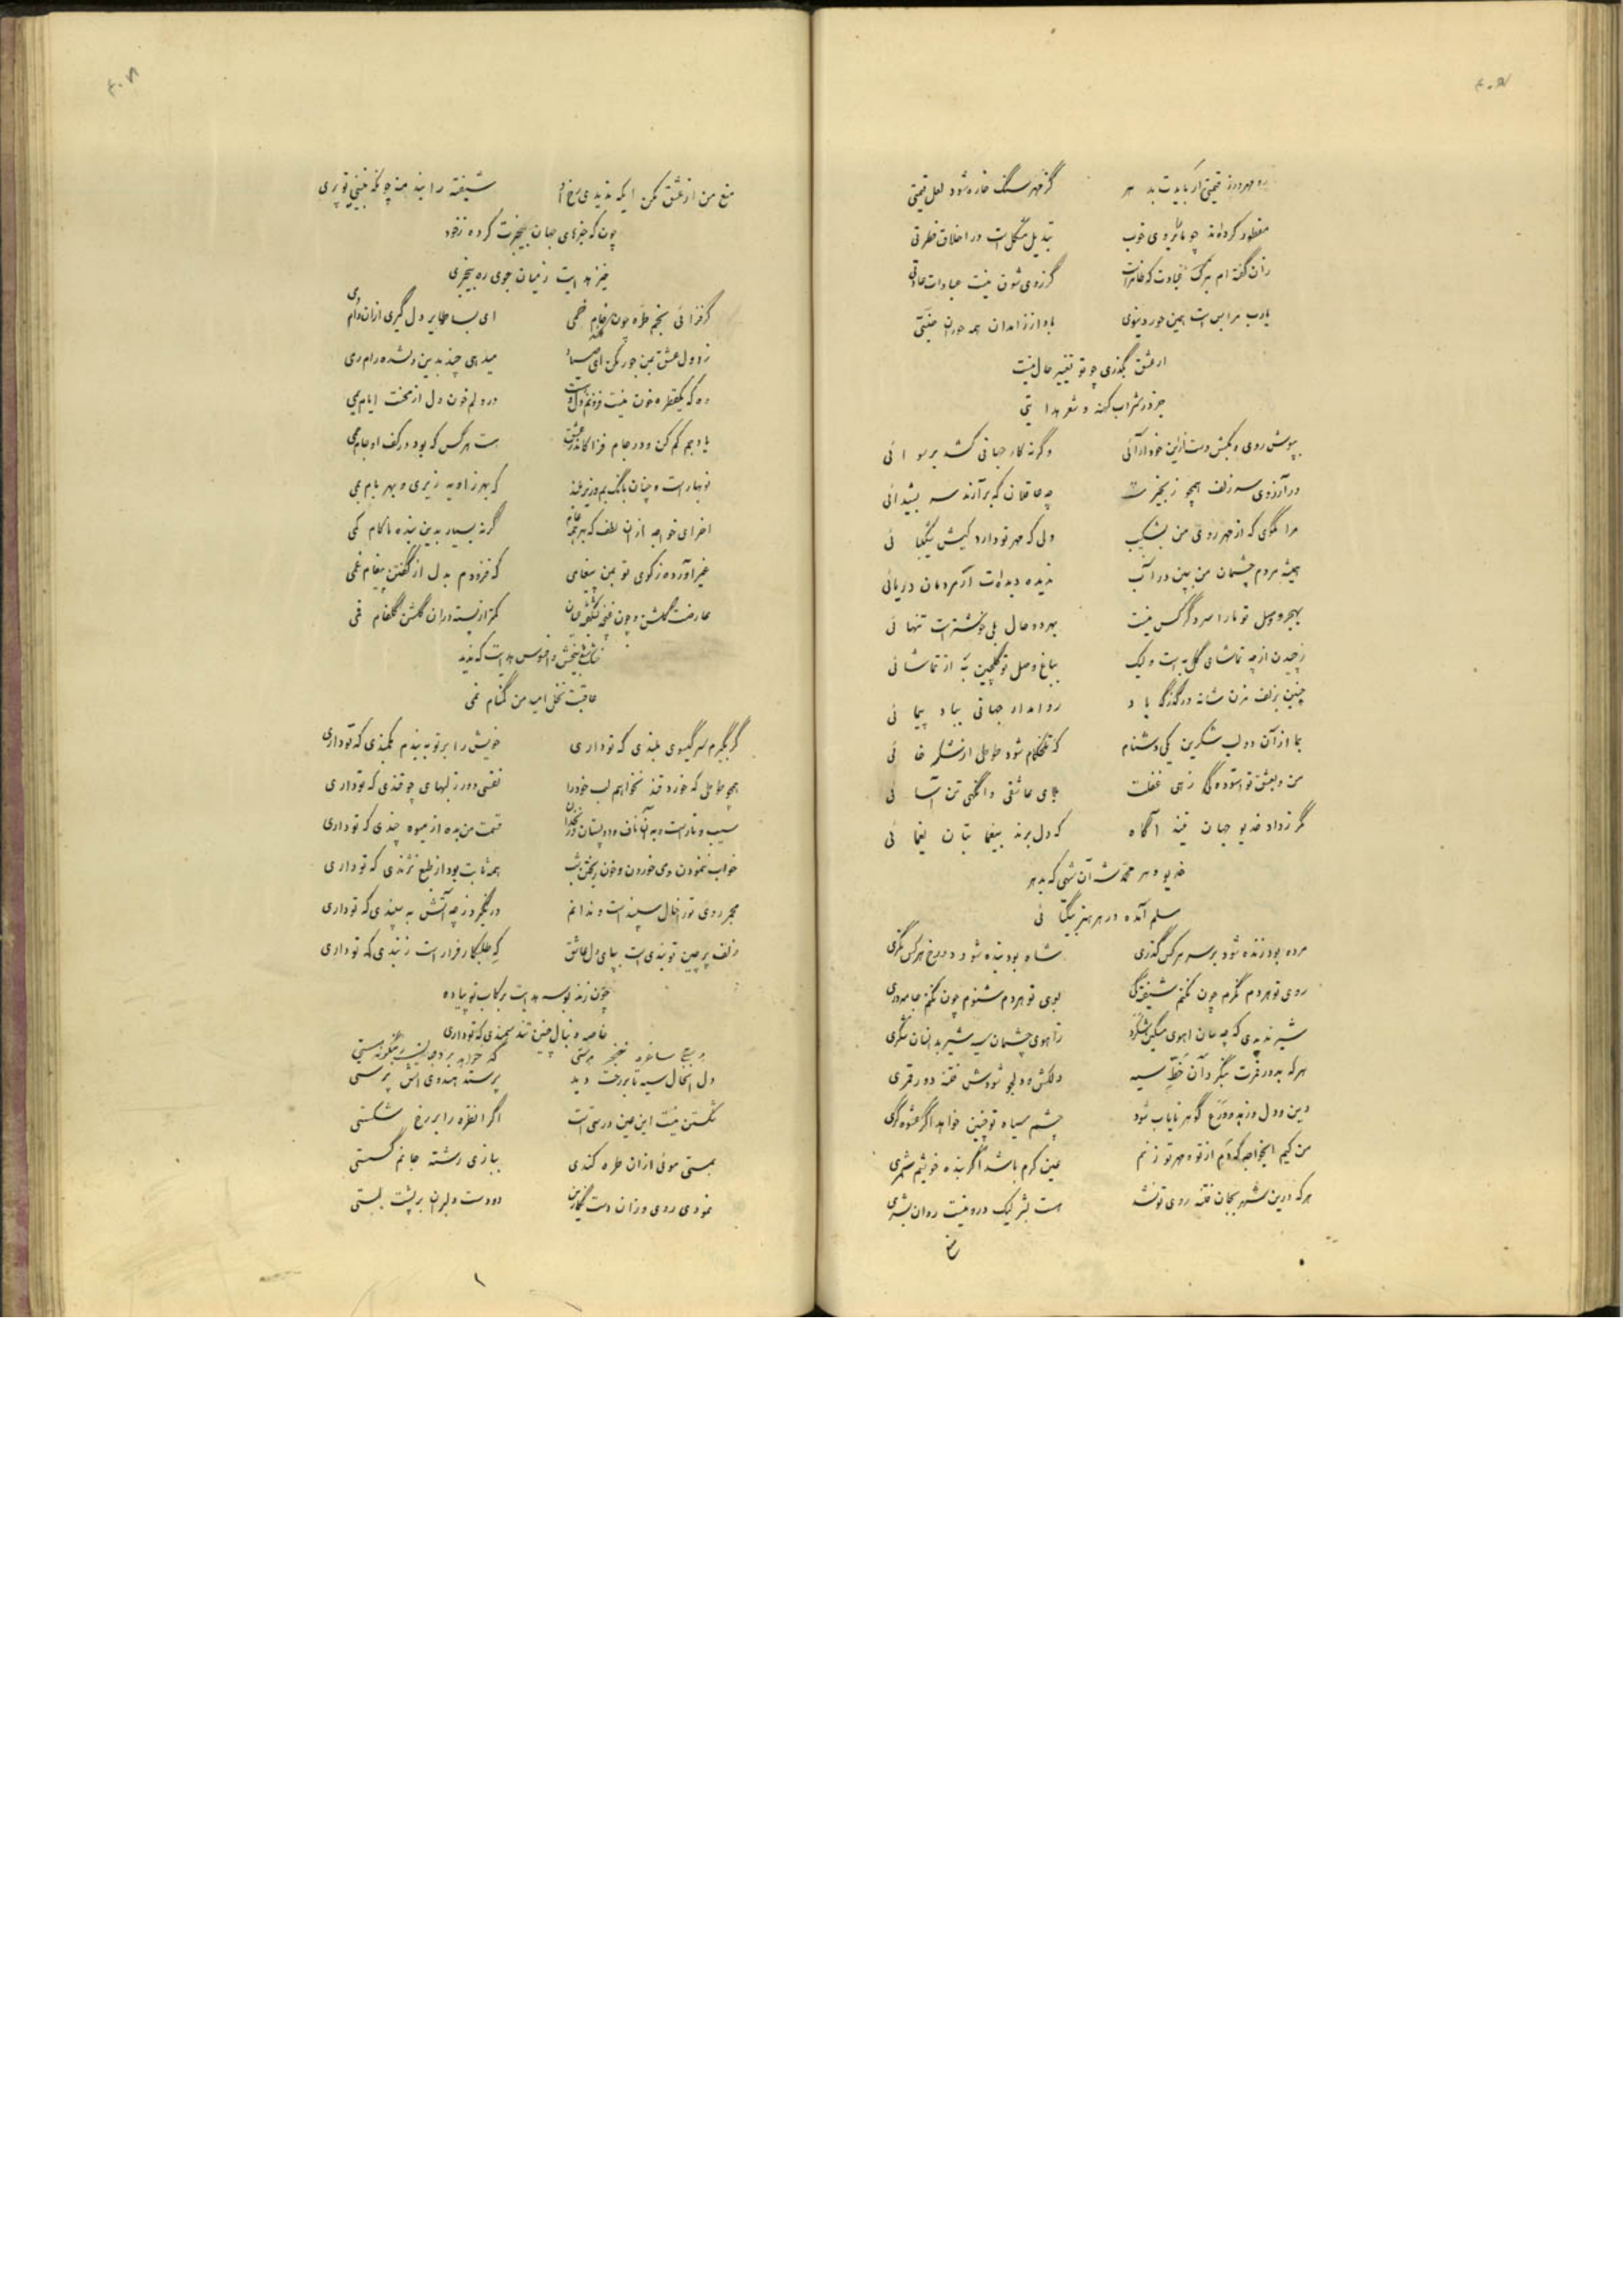 گر مهر سنگ خاره شود لعل قیمتی
مفطور کرده‌اند چو ما را بروی خوب تبدیل مشکل است در اخلاق فطرتی
زان گفته‌ام بترک عبادت که ظاهر است گر زوی شوق نیست عبادات عادتی
یارب مرا بس است همین حور دنیوی بادا ز زاهدان همه حوران جنتی
از عشق بگذری چو تو تغییر حال نیست
جز در شراب کهنه و شعر هدایتی
بپوش روی و بکش دست ازین خودآرائی وگرنه کار جهانی کشد برسوائی
در آرزوی سر زلف همچو زنجیرت چه عاقلان که برآرند سر بشیدائی
مرا مگوی که از مهر روی من بشکیب ولی که مهر تو دارد کیش شکیبائی
همیشه مردم چشمان من ببین در آب ندیده دیده‌ات ار مردمان دریائی
بهجر و وصل تو ما را سر دگر کس نیست بهر دو حال بلی خوشتر است تنهائی
ز چیدن ار چه تماشای گل به است ولیک بباغ وصل تو گلچین به از تماشائی
چنین بزلف مزن شانه در گذرگه باد روا مدار جهانی بباد پیمائی
بما از آن دو لب شکرین یکی دشنام که تلخکام شود طوطی از شکر خائی
من و بعشق تو آسوده‌گی زهی غفلت بلای عاشقی وانگهی تن آسائی
مگر ز داد خدیو جهان نیند آگاه که دل برند بیغما بتان یغمائی
خدیو دهر محمد شه آن شهی که بدهر
مسلم آمده در هر هنر بیکتائی
مرده بود زنده شود بر سر هر کس گذری شاه بود بنده شود در رخ هر کس نگری
روی تو هر دم نگرم چون نکنم شیفتگی بوی تو هر دم شنوم چون نکنم جامه‌دری
شیر ندیدی که چه سان آهوی مسکین شکرد ز آهوی چشمان سیه شیر بدانسان شکری
هر که بدور قمرت بنگرد آن خط سیه دلکش و دلجو شودش فتنه دور قمری
دین و دل و زهد و ورع گو همه نایاب شود چشم سیاه تو چنین خواهد اگر عشوه‌گری
من کیم ایخواجه که دم از تو و مهر تو زنم عین کرم باشد اگر بنده خویشم شمری
هر که درین شهر بجان فتنه روی تو نشد هست بشر لیک درو نیست روان بشری
منع
منع من از عشق مکن ایکه ندیدی رخ او شیفته را پند مده چونکه نبینی تو پری
چون که خبرهای جهان بیخبرت کرده ز خود
خیز هدایت ز میان جوی ره بیخبری
گر فزائی بخم طره چون خام خمی ای بسا طایر دل گیری ازان دام همی
ز دو دل عشق بمن جور مکن ای صیاد میدهی چند بدین دلشده رام رمی
وه که یکقطره خون نیست فزونم دل و در دلم خون دل از سخت ایام یمی
باده هم کم کن و در جام فزا کاندر عشق هست هر کس که بود در کف او جام جمی
نوبهار است و چنان بانگ بم و زیر بلند که بهر زاویه زیری و بهر بام بمی
آخر ای خواجه از ان لطف که بر همه عام گر نه بسیار بدین بنده ناکام کمی
غیر آورده ز کوی تو بمن پیغامی که فزودم بدل از گفتن پیغام غمی
عارضت گلشن و چون غنچه نشکفته دهان کمتر از پسته دران گلشن گلفام فمی
افسوس هدایت که ندید
عاقبت نخل امید من گمنام نمی
گر بگیرم سر گیسوی بلندی که تو داری خویش را بر تو ببندم بکمندی که تو داری
همچو طوطی که خورد قند نخواهیم لب خود را نفسی دور ز لبهای چو قندی که تو داری
سیب و نار است و به آن ناف و دو پستان و زنخدان قسمت من بده از میوه چندی که تو داری
خواب ننمودن و می خوردن و خون ریختن شب همه ثابت بود از طبع نژندی که تو داری
مجمر روی تو را خال سپند است و ندانم در نگیرد ز چه آتش به سپندی که تو داری
زلف پر چین تو بندی است بپای دل عاشق که طلبکار فرار است ز بندی که تو داری
چون زند بوسه هدایت برکاب تو پیاده
خاصه دنبال چنین تند سمندی که تو داری
دل آنخال سیه تا بر رخت دید پرستد هندوی آتش پرستی
شکستن نیست این عین درستی است اگر آنطره را بر رخ شکستی
بمستی موئی ازان طره کندی ببازی رشته جانم گسستی
نمودی روی و زان دست نگارین دو دست دلبران بر پشت بستی